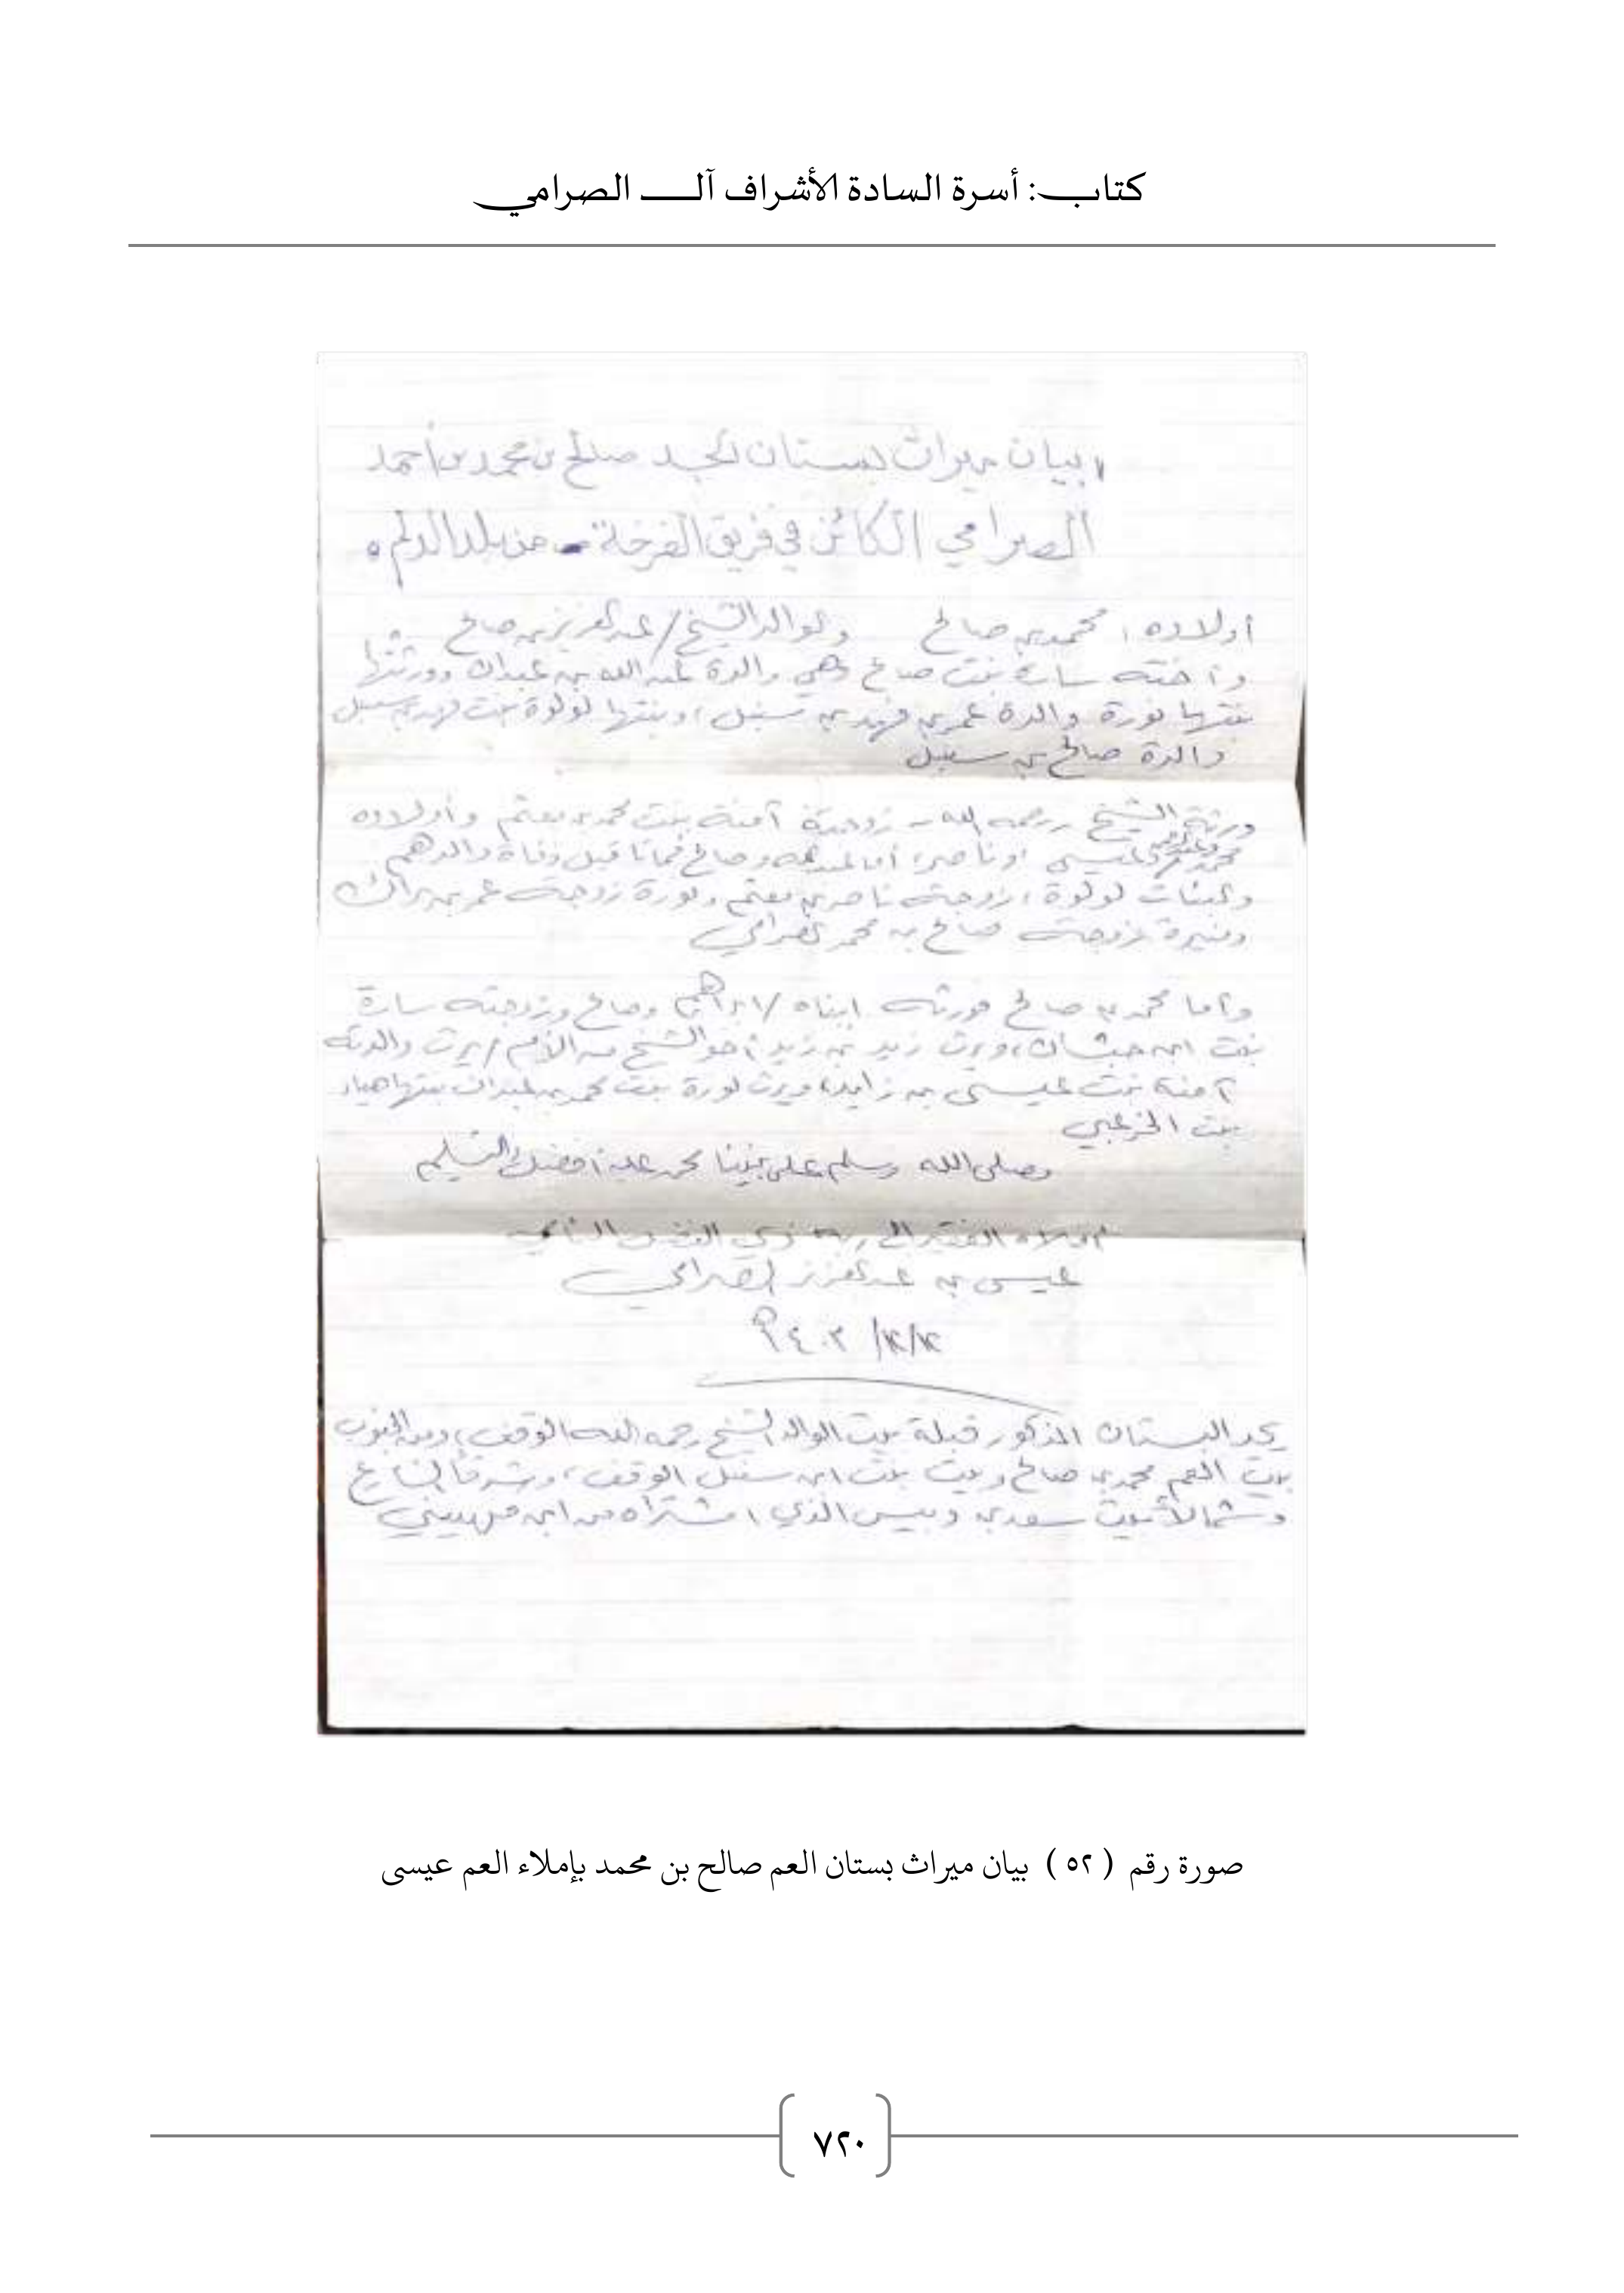 كتاب: أسرة السادة الأشراف آل الصرامي
بيان ميراث بستان الجد صالح بن محمد بن أحمد
الصرامي الكائن في فريق الفرخة من بلد الدلم
أولاده: محمد بن صالح والوالد الشيخ/ عبدالعزيز بن صالح
وأخته سارة بنت صالح وهي والدة عبدالله بن عبدان وورثتها
بنتها نورة والدة عمر بن فهد بن سنبل، وبنتها لولوة بنت فهد بن سنبل
والدة صالح بن سنبل
ورثة الشيخ رحمه الله - زوجته آمنة بنت محمد بن معتم وأولاده
محمد وعيسى وناصر، أما عبدالله وصالح فماتا قبل وفاة والدهم
والبنات لولوة، زوجة ناصر بن معتم ونورة زوجة عمر بن براك
ومنيرة زوجة صالح بن محمد الصرامي
وأما محمد بن صالح فورثه ابناه/ ابراهيم وصالح وزوجته سارة
بنت ابن حبشان، ويرث زيد بن زيد أخو الشيخ من الأم/ يرث والدته
آمنة بنت عيسى بن زايد، ويرث نورة بنت محمد بن عبدان بنتها هيا
بنت الخرعبي
وصلى الله وسلم على نبينا محمد عليه أفضل التسليم
أملاه الفقير إلى ربه
عيسى بن عبدالعزيز الصرامي
١٤٠٣هـ
يحد البستان المذكور قبلة بيت الوالد الشيخ رحمه الله الوقف، ومن الجنوب
بيت العم محمد بن صالح وبيت بنت ابن سنبل الوقف، وشرقاً الشارع
وشمالاً بيت سعد بن دبيس الذي اشتراه من ابن
صورة رقم ( ٥٢ ) بيان ميراث بستان العم صالح بن محمد بإملاء العم عيسى
٧٢٠